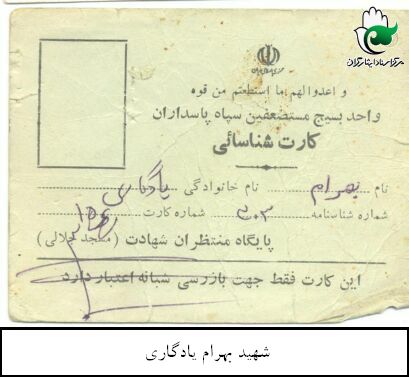 مرکز اسناد ایثارگران
جمهوری اسلامی ایران
و اعدوا لهم ما استطعتم من قوه
واحد بسیج مستضعفین سپاه پاسداران
کارت شناسائی
نام بهرام نام خانوادگی یادگاری
شماره شناسنامه ۳۰۳ شماره کارت
پایگاه منتظران شهادت (مسجد جلالی)
این کارت فقط جهت بازرسی شبانه اعتبار دارد
شهید بهرام یادگاری